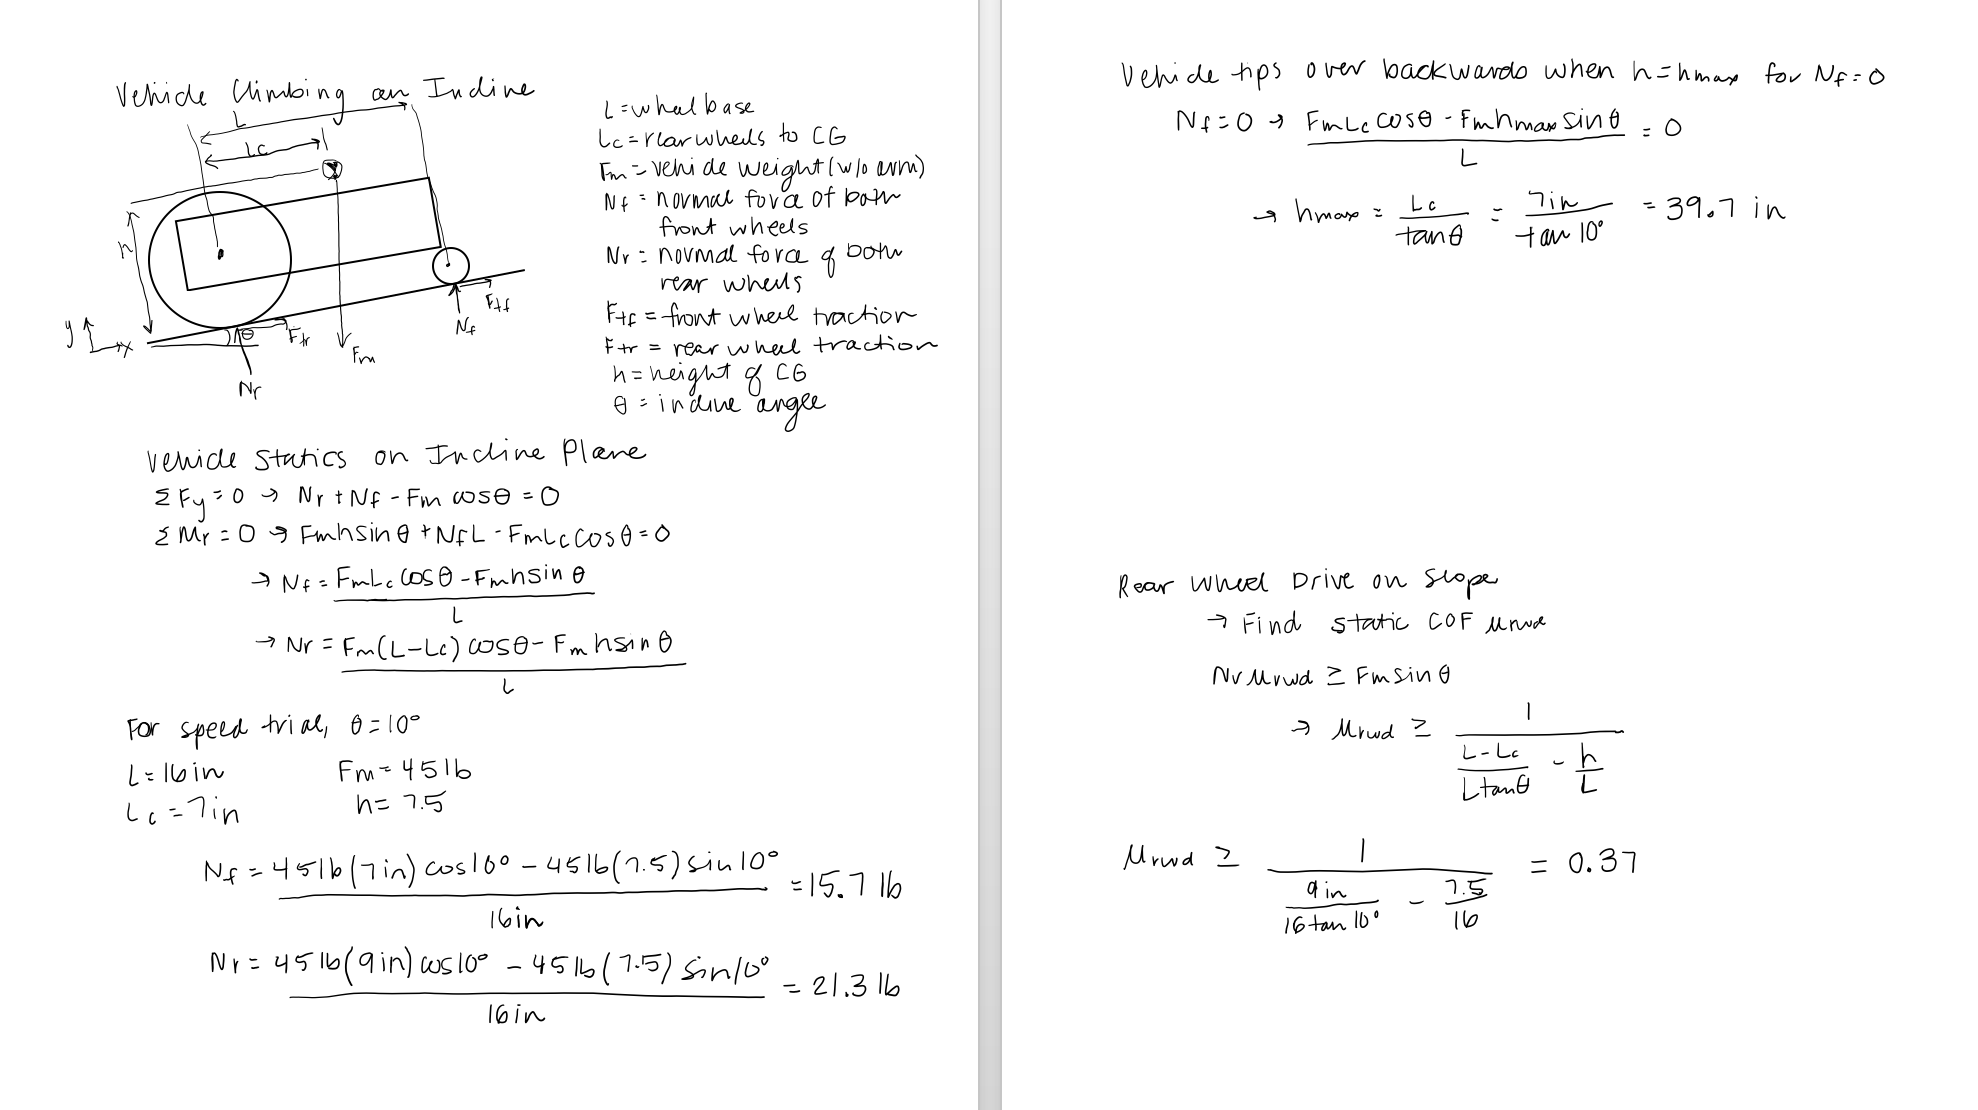 Vehicle Climbing an Incline
L
Lc
h
y
x
θ
Ftr
Nr
Fm
Nf
Ftf
L = wheel base
Lc = rear wheels to CG
Fm = vehicle weight (w/o arm)
Nf = normal force of both
front wheels
Nr = normal force of both
rear wheels
Ftf = front wheel traction
Ftr = rear wheel traction
h = height of CG
θ = incline angle
Vehicle Statics on Incline Plane
ΣFy = 0 → Nr + Nf - Fm cosθ = 0
ΣMr = 0 → Fm h sinθ + Nf L - Fm Lc cosθ = 0
→ Nf = (Fm Lc cosθ - Fm h sinθ) / L
→ Nr = (Fm(L-Lc) cosθ - Fm h sinθ) / L
For speed trial, θ = 10°
L = 16in Fm = 45lb
Lc = 7in h = 7.5
Nf = (45lb(7in) cos10° - 45lb(7.5) sin10°) / 16in = 15.7 lb
Nr = (45lb(9in) cos10° - 45lb(7.5) sin10°) / 16in = 21.3 lb
Vehicle tips over backwards when h = hmax for Nf = 0
Nf = 0 → (Fm Lc cosθ - Fm hmax sinθ) / L = 0
→ hmax = Lc / tanθ = 7in / tan10° = 39.7 in
Rear Wheel Drive on Slope
→ Find static COF μrwd
Nr μrwd ≥ Fm sinθ
→ μrwd ≥ 1 / ((L-Lc)/(L tanθ) - h/L)
μrwd ≥ 1 / (9in/(16 tan10°) - 7.5/16) = 0.37